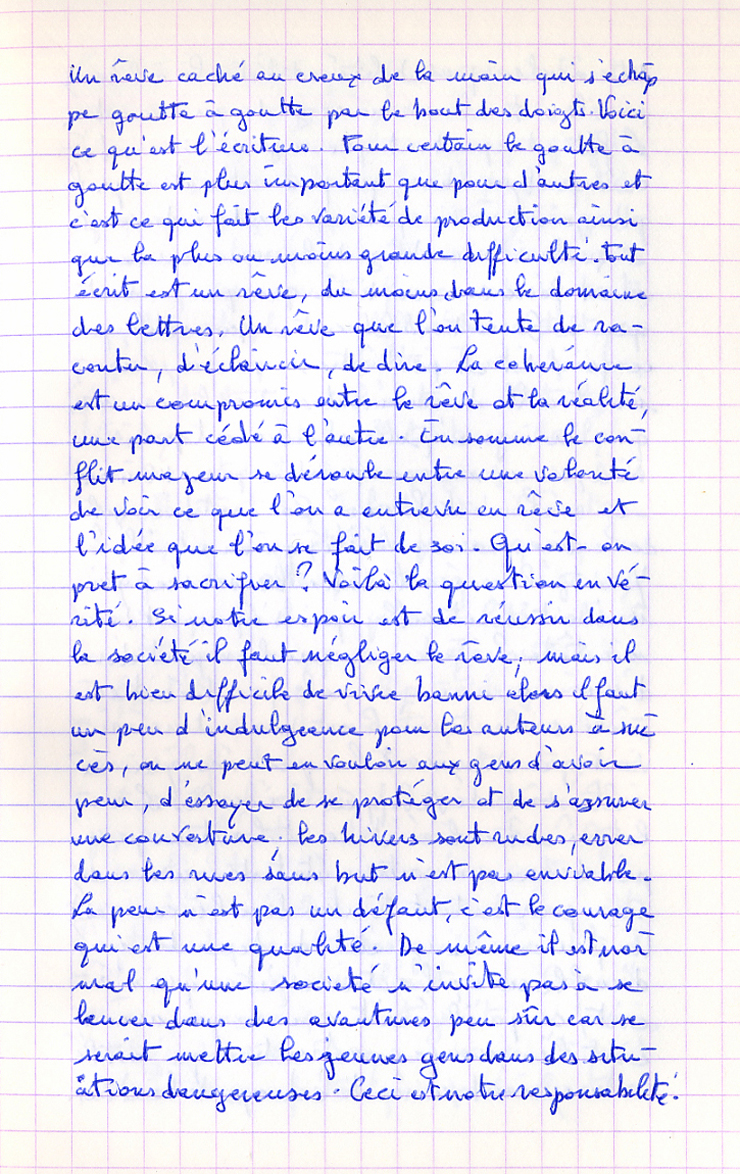 Un rêve caché au creux de la main qui s'échap
pe goutte à goutte par le bout des doigts. Voici
ce qu'est l'écriture. Pour certain le goutte à
goutte est plus important que pour d'autres et
c'est ce qui fait les variété de production ainsi
que la plus ou moins grande difficulté. Tout
écrit est un rêve, du moins dans le domaine
des lettres. Un rêve que l'on tente de ra-
conter, d'éclaircir, de dire. La coheránce
est un compromis entre le rêve et la réalité,
une part cédé à l'autre. En somme le con-
flit majeur se déroule entre une volonté
de voir ce que l'on a entrevu en rêve et
l'idée que l'on se fait de soi. Qu'est-on
pret à sacrifier ? Voilà la question en vé-
rité. Si notre espoir est de réussir dans
la société il faut négliger le rêve, mais il
est bien difficile de vivre banni alors il faut
un peu d'indulgeance pour les auteurs à suc
cès, on ne peut en vouloir aux gens d'avoir
peur, d'éssayer de se protéger et de s'assurer
une couverture, les hivers sont rudes, errer
dans les rues sans but n'est pas enviable.
La peur n'est pas un défaut, c'est le courage
qui est une qualité. De même il est nor
mal qu'une societé n'invite pas à se
lancer dans des avantures peu sûr car se
serait mettre les jeunes gens dans des situ-
ations dangereuses. Ceci est notre responsabilité.